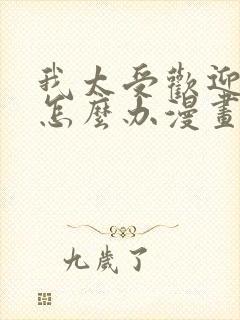 我太受歡迎
怎麼办漫畫
九歲了